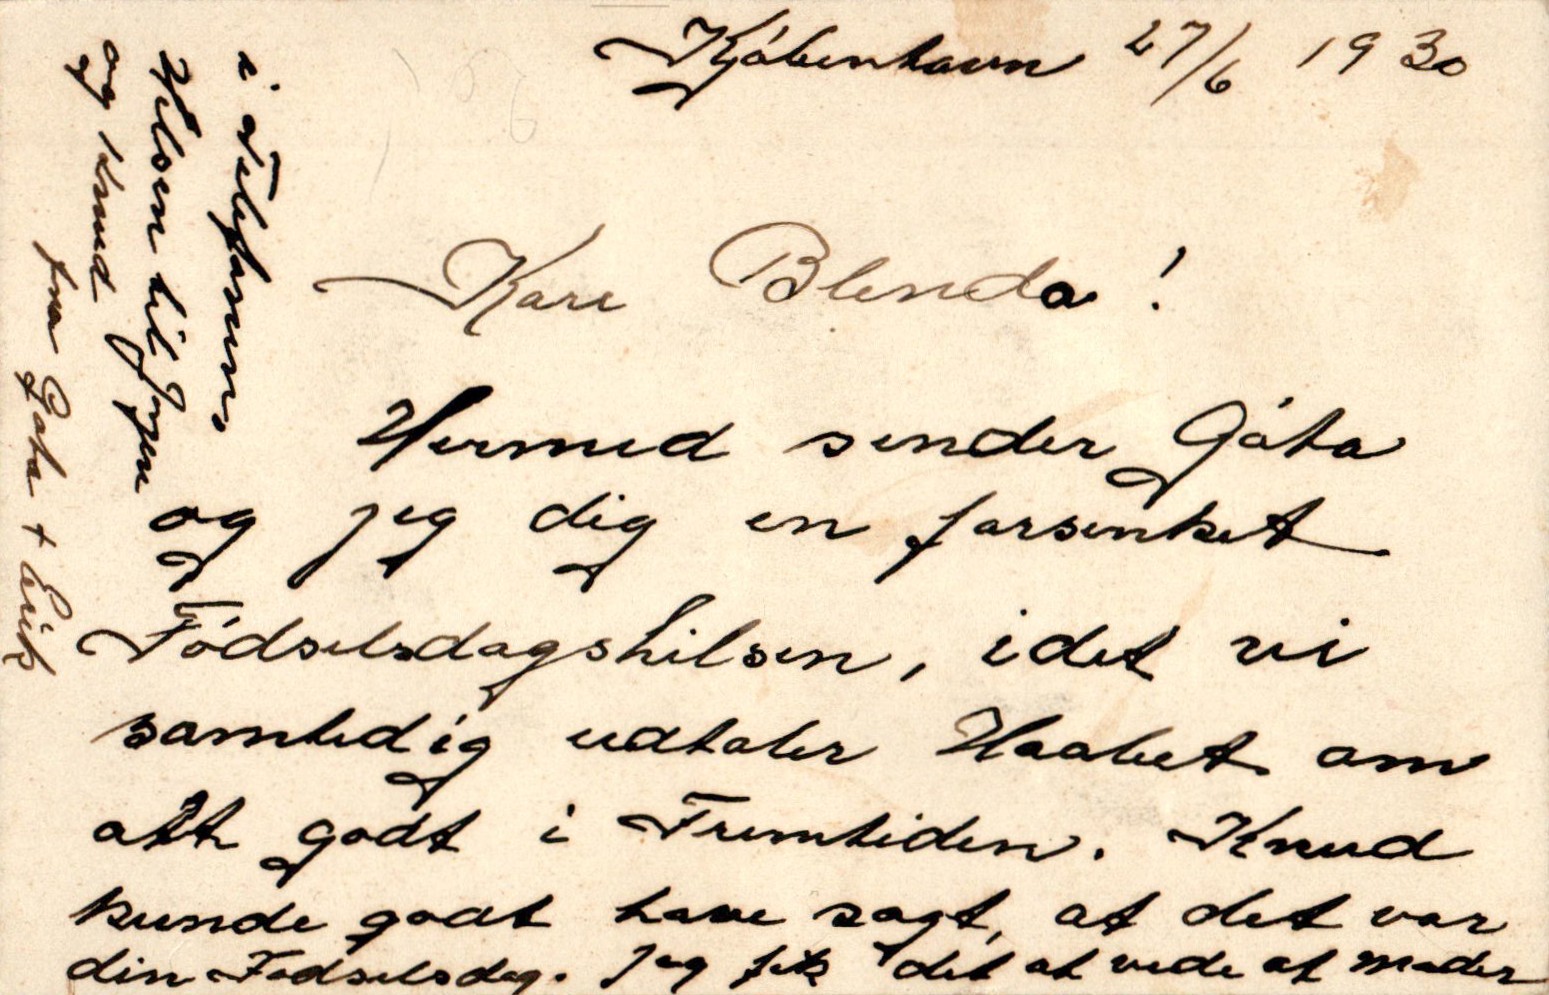 København 27/6 1930
Kære Blenda!
Hermed sender Göta
og jeg dig en forsinket
Fødselsdagshilsen, idet vi
samtidig udtaler Haabet om
alt godt i Fremtiden. Knud
kunde godt have sagt, at det var
din Fødselsdag. Jeg fik det at vide af Moder
i Telefonen.
Hilsen til Jørgen
og Knud
fra Göta + Erik